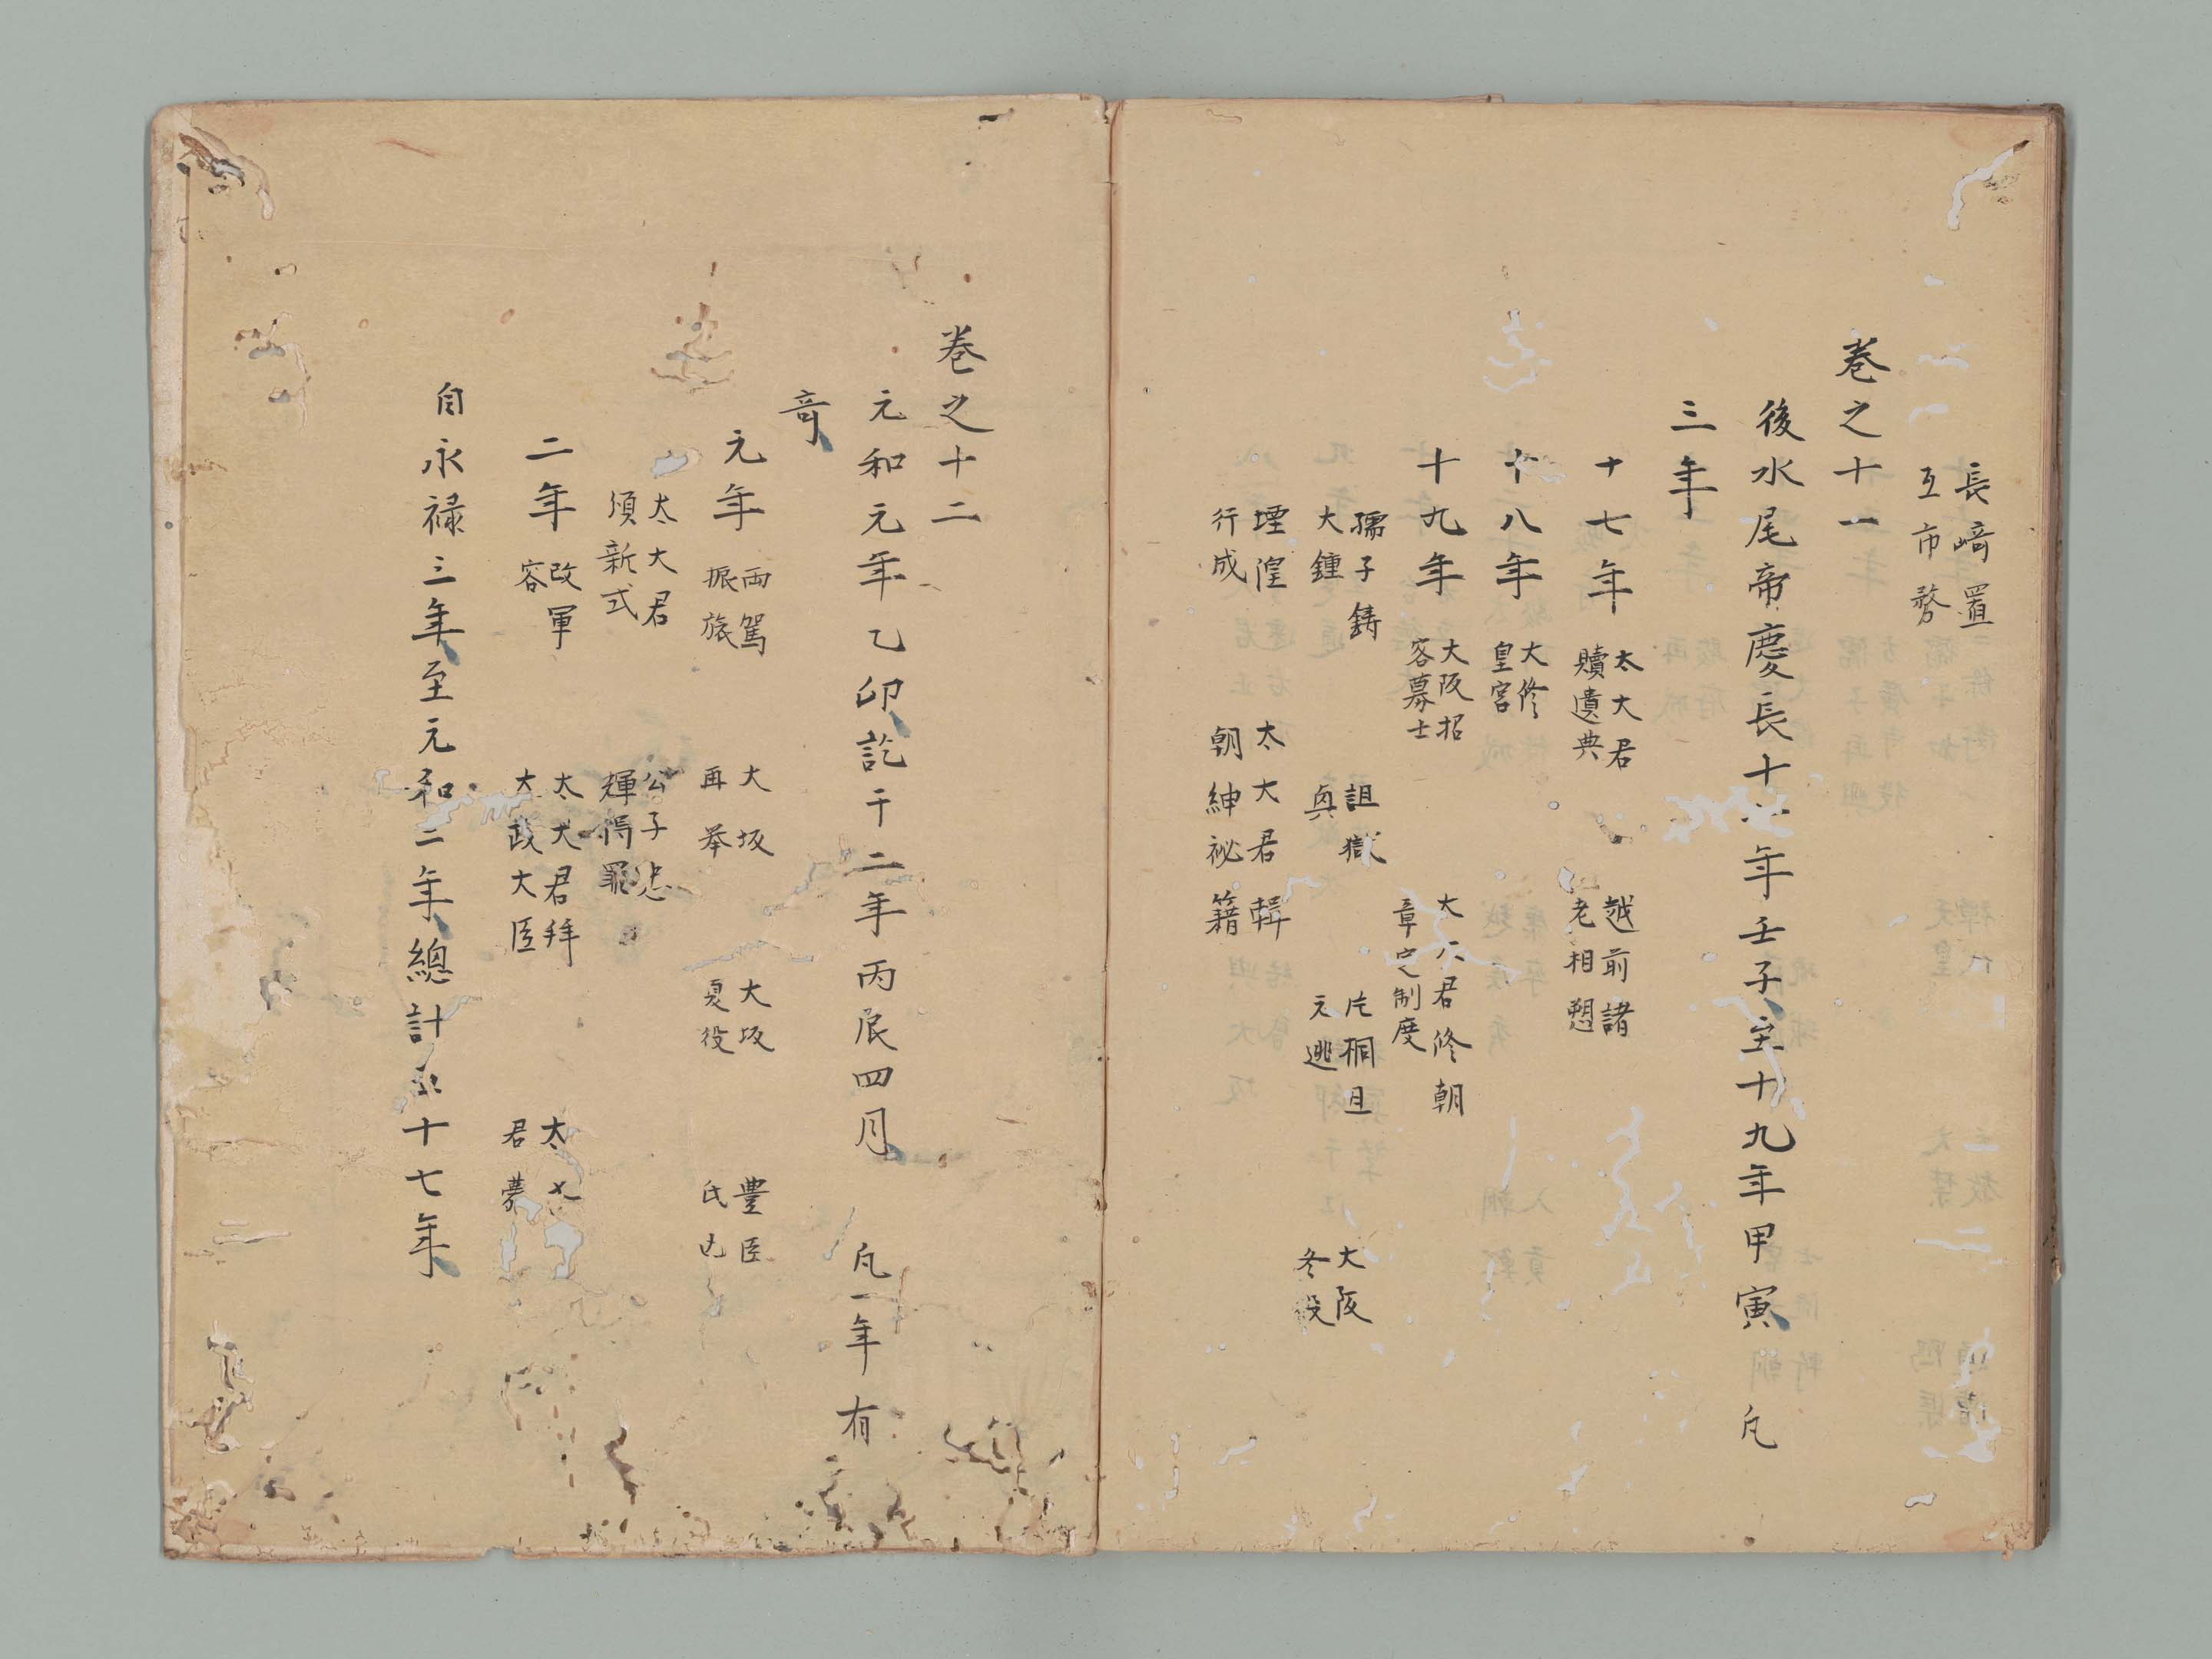 長﨑置
互市務
巻之十一
後水尾帝慶長十 年壬子至十九年甲寅 凡
三年
十七年 太大君贖遺典 越前諸老相愬
十八年 大修皇宮
十九年 大阪招客募士 大 君修朝章定制度
孺子鋳大鍾 詛獄 片桐且元逃 大阪冬役
堙隍行成 太大君輯朝紳秘籍
巻之十二
元和元年乙卯訖于二年丙辰四月 凡一年有
竒
元年 両駕振旅 大坂再挙 大坂夏役 豊臣氏亡
太大君須新式 公子忠輝得罪
二年 改軍容 太大君拜太政大臣 太大君薨
自永禄三年至元和二年總計 十七年